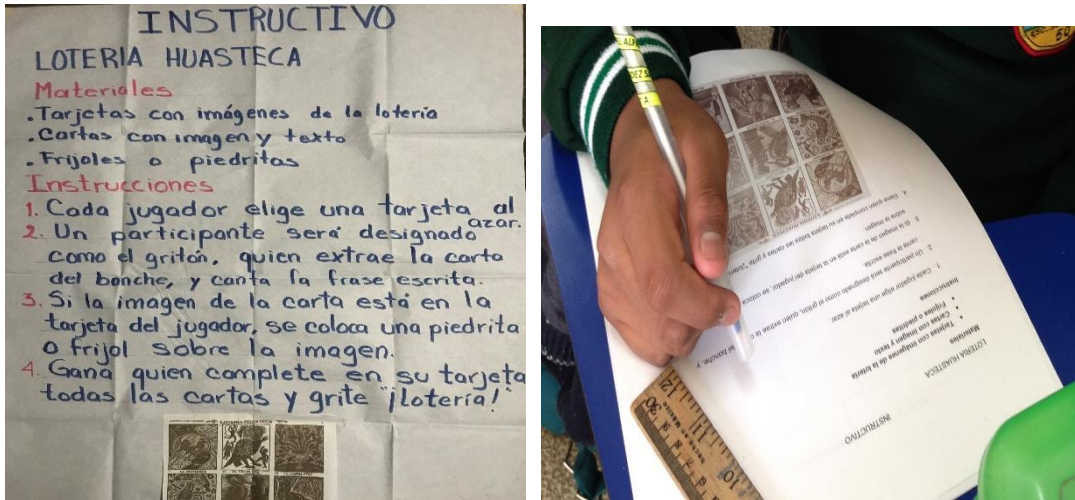 INSTRUCTIVO
LOTERIA HUASTECA
Materiales
.Tarjetas con imágenes de la lotería
.Cartas con imagen y texto
.Frijoles o piedritas
Instrucciones
1. Cada jugador elige una tarjeta al azar.
2. Un participante será designado
como el gritón, quien extrae la carta
del bonche, y canta la frase escrita.
3. Si la imagen de la carta está en la
tarjeta del jugador, se coloca una piedrita
o frijol sobre la imagen.
4. Gana quien complete en su tarjeta
todas las cartas y grite "¡lotería!"
INSTRUCTIVO
LOTERIA HUASTECA
Materiales
Tarjetas con imágenes de la lotería
Cartas con imagen y texto
Frijoles o piedritas
Instrucciones
1. Cada jugador elige una tarjeta al azar.
2. Un participante será designado como el gritón, quien extrae la c
el bonche, y
canta la frase escrita.
3. Si la imagen de la carta está en la tarjeta del jugador, se coloca
sobre la imagen.
4. Gana quien complete en su tarjeta todas las cartas y grite
30
12
10
50